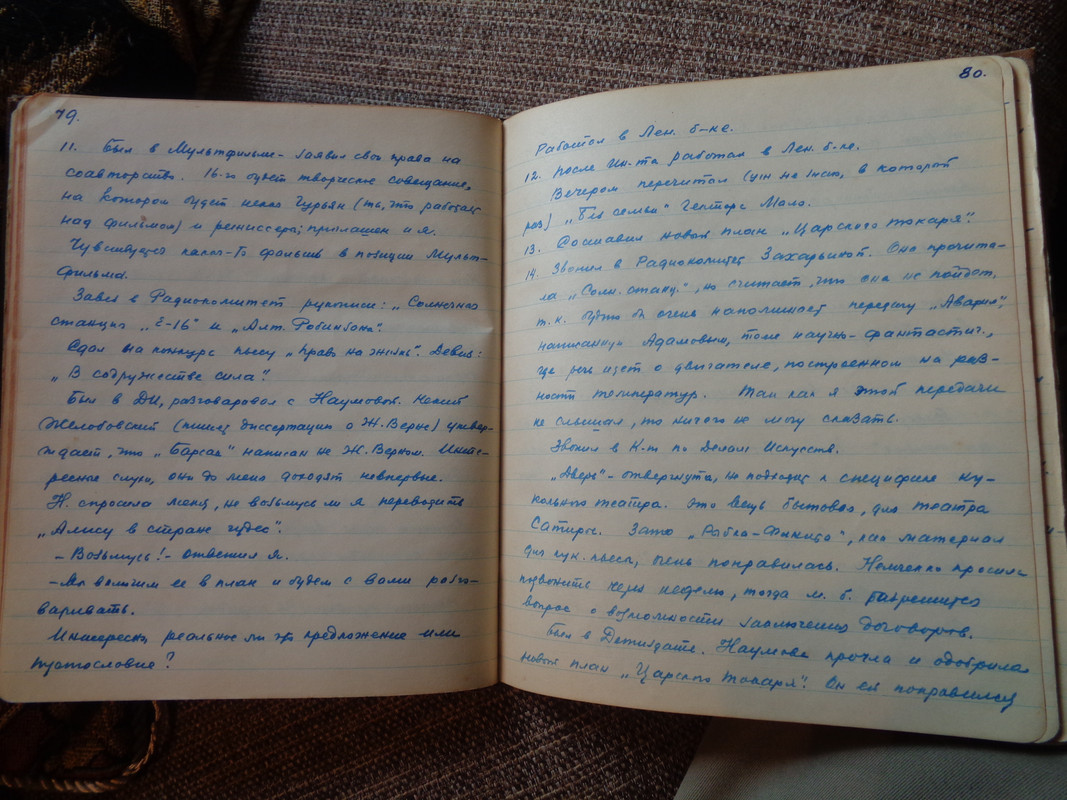 79.
11. Был в Мультфильме - заявил свои права на
соавторство. 16-го будет творческое совещание,
на котором будет некто Гурьян (то, что работает
над фильмом) и режиссера; приглашен и я.
Чувствуется какая-то фальшь в позиции Мульт-
фильма.
Завез в Радиокомитет рукописи: „Солнечная
станция „Е-16" и „Алт. Робинзоны".
Сдал на конкурс пьесу „Право на жизнь". Девиз:
„В содружестве сила".
Был в ДИ, разговаривал с Наумовой. Некий
Желобовский (пишет диссертацию о Ж. Верне) утвер-
ждает, что „Барсак" написан не Ж. Верном. Инте-
ресные слухи, они до меня доходят невпервые.
Н. спросила меня, не возьмусь ли я переводить
„Алису в стране чудес".
- Возьмусь! - ответил я.
- Мы включим ее в план и будем с вами разго-
варивать.
Интересно, реальное ли это предложение или
пустословие?
80.
Работал в Лен. б-ке.
12. После Ин-та работал в Лен. б-ке.
Вечером перечитал (уж не знаю, в который
раз) „Без семьи" Гектора Мало.
13. Составил новый план „Царского токаря".
14. Звонил в Радиокомитет Захарьиной. Она прочита-
ла „Солн. станц.", но считает, что она не пойдет,
т.к. будто бы очень напоминает передачу „Авария",
написанную Адамовым, тоже научно-фантастич.,
где речь идет о двигателе, построенном на раз-
ности температур. Так как я этой передачи
не слышал, то ничего не могу сказать.
Звонил в К-т по Делам Искусств.
„Дверь" - отвергнута, не подходит к специфике ку-
кольного театра. Это вещь бытовая, для театра
Сатиры. Зато „Рабка-", как материал
для кук. пьесы, очень понравилась. Немченко просила
подзвонить через неделю, тогда м. б. разрешится
вопрос о возможности заключения договоров.
Был в Детиздате. Наумова прочла и одобрила
новый план „Царского Токаря". Он ей понравился